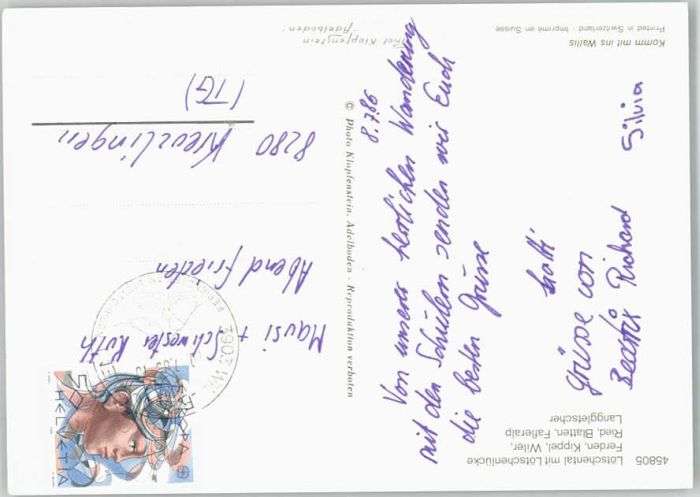 45805
Lötschental mit Lötschenlücke
Ferden, Kippel, Wiler,
Ried, Blatten, Fafleralp
Langgletscher
8.7.86
Von unserer herrlichen Wanderung
mit den Schülern senden wir Euch
die besten Grüsse
Grüsse von
Beatrix Richard Silvia
© Photo Klopfenstein, Adelboden - Reproduktion verboten
Komm mit ins Wallis
Printed in Switzerland · Imprimé en Suisse
Klopfenstein
Adelboden
HELVETIA
3903
Mausi + Schwester Ruth
Abendfrieden
8280 Kreuzlingen
(TG)